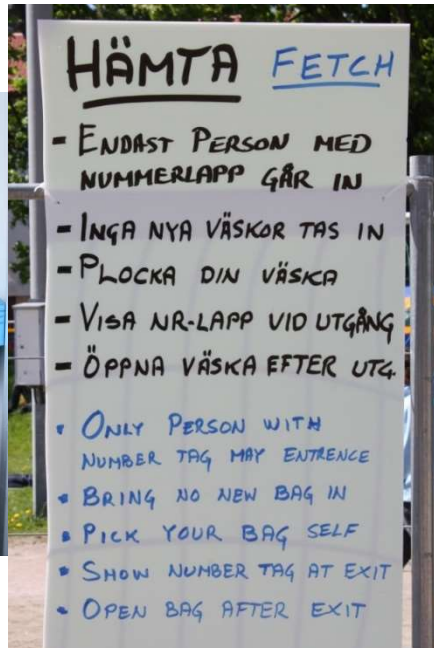 HÄMTA FETCH
- ENDAST PERSON MED
NUMMERLAPP GÅR IN
- INGA NYA VÄSKOR TAS IN
- PLOCKA DIN VÄSKA
- VISA NR-LAPP VID UTGÅNG
- ÖPPNA VÄSKA EFTER UTG.
• ONLY PERSON WITH
NUMBER TAG MAY ENTRENCE
• BRING NO NEW BAG IN
• PICK YOUR BAG SELF
• SHOW NUMBER TAG AT EXIT
• OPEN BAG AFTER EXIT